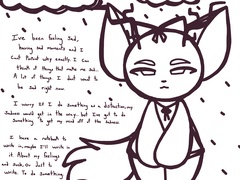 I've been feeling Sad,
having sad moments and I
can't Pinpoint why exactly. I can
think of things that make me sad.
A lot of things. I don't want to
be sad right now.
I worry if I do something as a distraction, my
Sadness would get in the way. but I've got to do
Something to get my mind off of the Sadness.
I have a notebook to
write in. maybe I'll write in
it About my feelings
and such. Or just to
write. To do Something